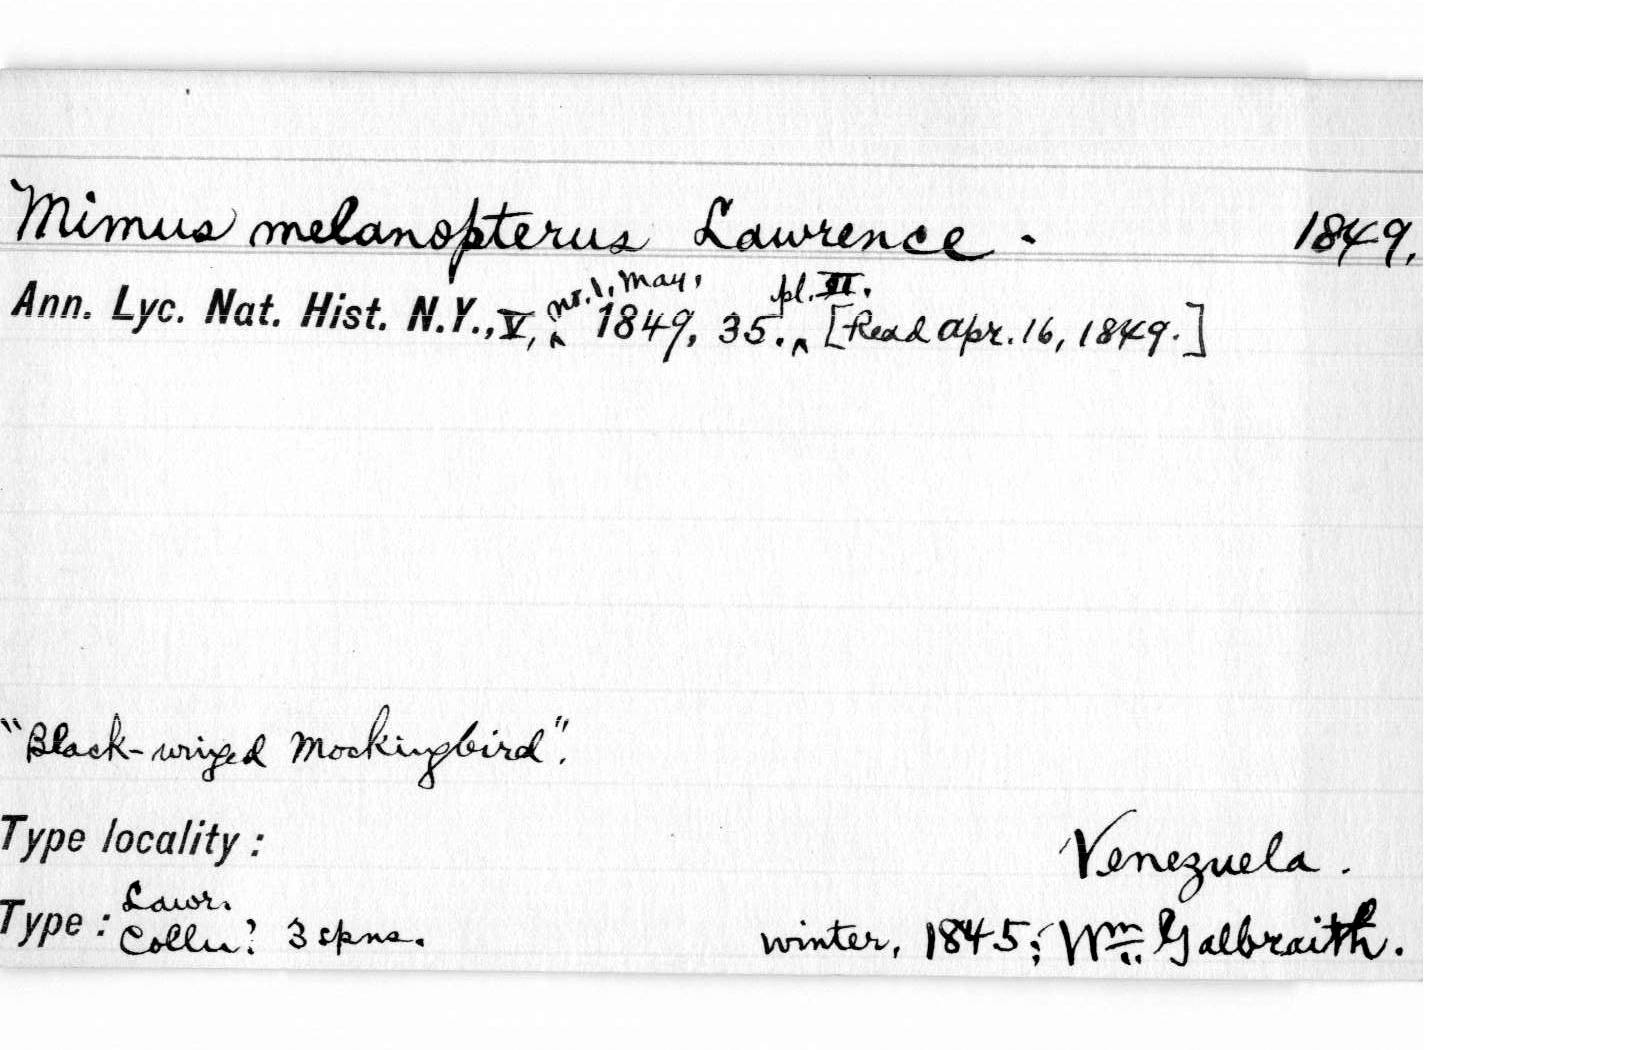 Mimus melanopterus Lawrence. 1849.
Ann. Lyc. Nat. Hist. N.Y., V, no. 1, May, 1849, 35. pl. II. [Read Apr. 16, 1849.]
"Black-winged Mockingbird".
Type locality: Venezuela.
Type: Lawr. Colln? 3 spns. winter, 1845; Wm. Galbraith.